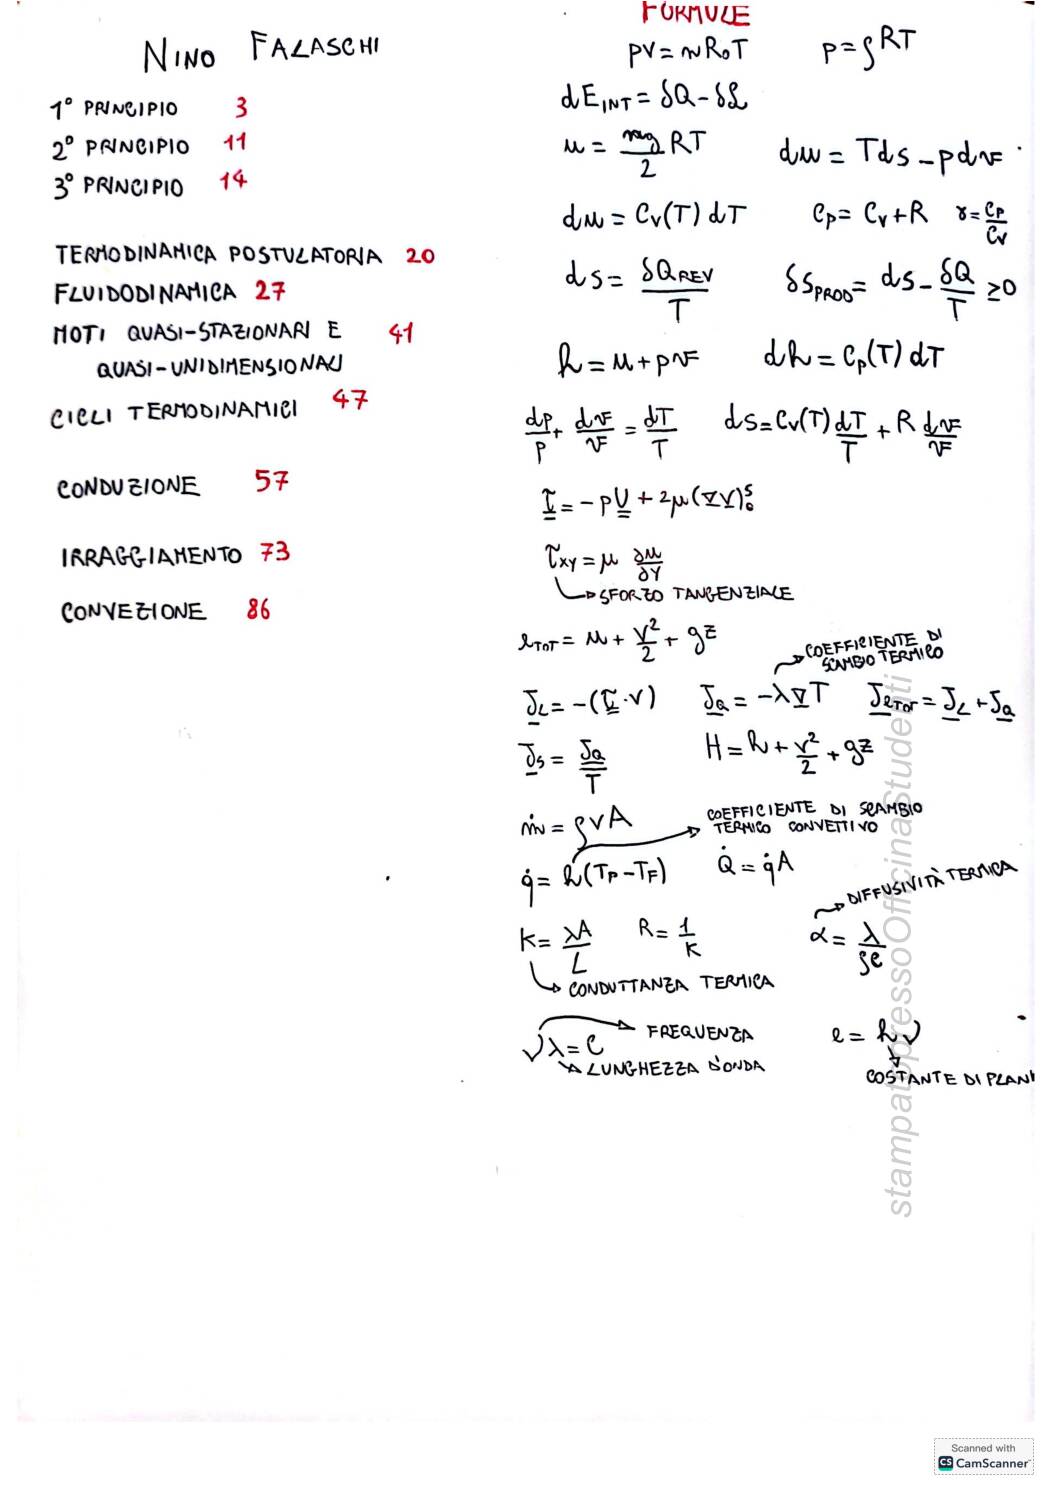 NINO FALASCHI
1° PRINCIPIO 3
2° PRINCIPIO 11
3° PRINCIPIO 14
TERMODINAMICA POSTULATORIA 20
FLUIDODINAMICA 27
MOTI QUASI-STAZIONARI E 41
QUASI-UNIDIMENSIONALI
CICLI TERMODINAMICI 47
CONDUZIONE 57
IRRAGGIAMENTO 73
CONVEZIONE 86
FORMULE
pV = nR₀T p = ρRT
dE_INT = δQ - δL
u = mg/2 RT du = Tds - pdv
du = Cv(T) dT Cp = Cv + R γ = Cp/Cv
ds = δQ_REV/T δS_PROD = ds - δQ/T ≥ 0
h = u + pv dh = Cp(T) dT
dp/p + dv/v = dT/T ds = Cv(T) dT/T + R dv/v
τ = -pU + 2μ(∇V)₀ˢ
τ_xy = μ ∂u/∂y
SFORZO TANGENZIALE
e_TOT = u + V²/2 + gz
COEFFICIENTE DI
SCAMBIO TERMICO
J_L = -(τ·V) J_Q = -λ∇T J_eTOT = J_L + J_Q
J_S = J_Q/T H = h + V²/2 + gz
ṁ = ρVA
COEFFICIENTE DI SCAMBIO
TERMICO CONVETTIVO
q̇ = h(T_P - T_F) Q̇ = q̇A
DIFFUSIVITÀ TERMICA
K = λA/L R = 1/K α = λ/ρc
CONDUTTANZA TERMICA
FREQUENZA
νλ = C e = hν
LUNGHEZZA D'ONDA
COSTANTE DI PLAN
stampato presso Officina Studenti
Scanned with
CS CamScanner